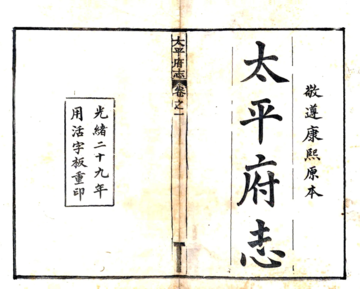 敬遵康熙原本
太平府志
太平府志 卷之一
光緒二十九年
用活字板重印